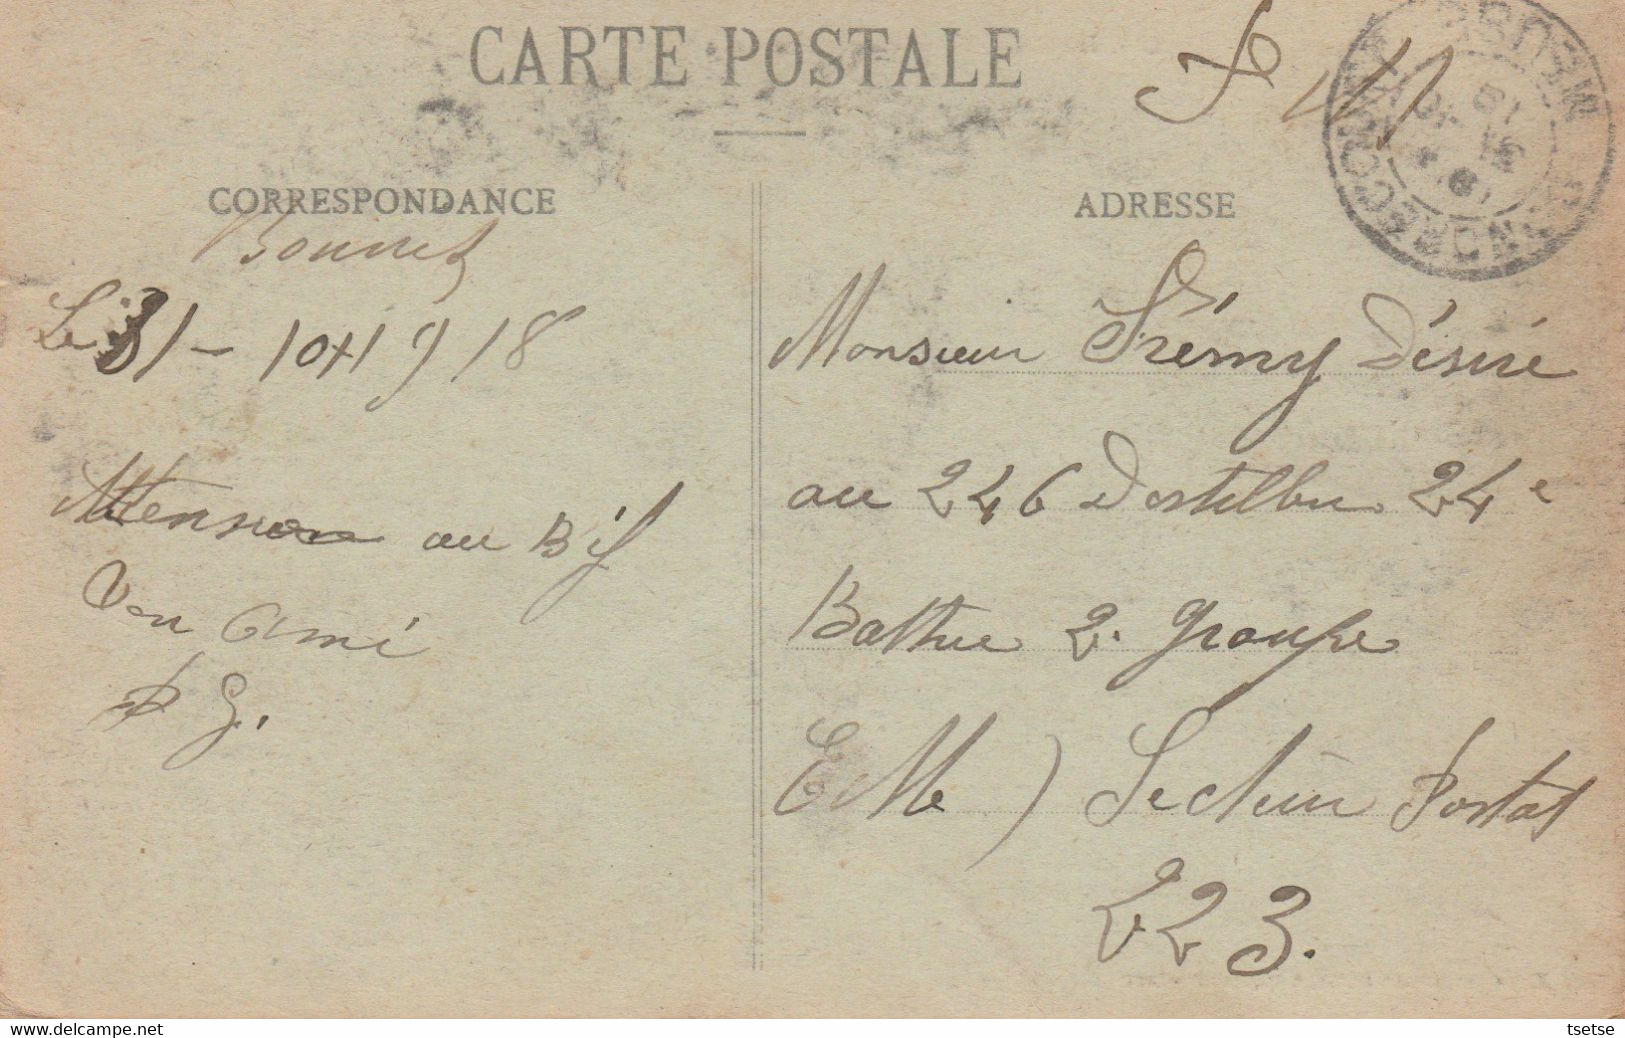 CARTE POSTALE
F M
CORRESPONDANCE
Bonnet
Le 31 - 10 1918
Attension au Bif
Ton Ami
P G.
ADRESSE
Monsieur Frémy Désiré
au 246 D'artillerie 24e
Battrie 2. groupe
Secteur Postal
223.
tsetse